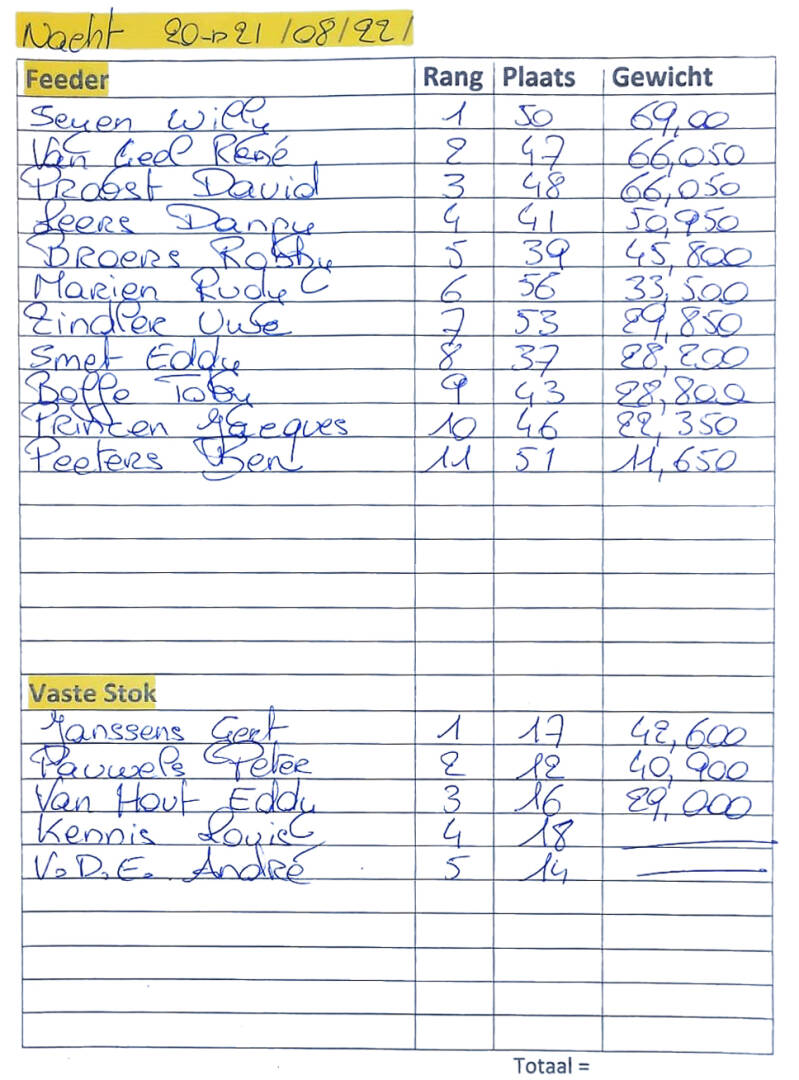 Nacht 20→21/08/22/
Feeder Rang Plaats Gewicht
Seyen Willy 1 50 69,00
Van Geel René 2 47 66,050
Probst David 3 48 66,050
Leers Danny 4 41 50,950
Broers Robby 5 39 45,800
Marien Rudy C 6 56 33,500
Zindler Uwe 7 53 29,850
Smet Eddy 8 37 28,200
Boffe Toby 9 43 28,800
Princen Jacques 10 46 22,350
Peeters Ben 11 51 11,650
Vaste Stok
Janssens Gert 1 17 42,600
Pauwels Peter 2 12 40,900
Van Hout Eddy 3 16 29,000
Kennis Louis C 4 18
V.D.E. André 5 14
Totaal =